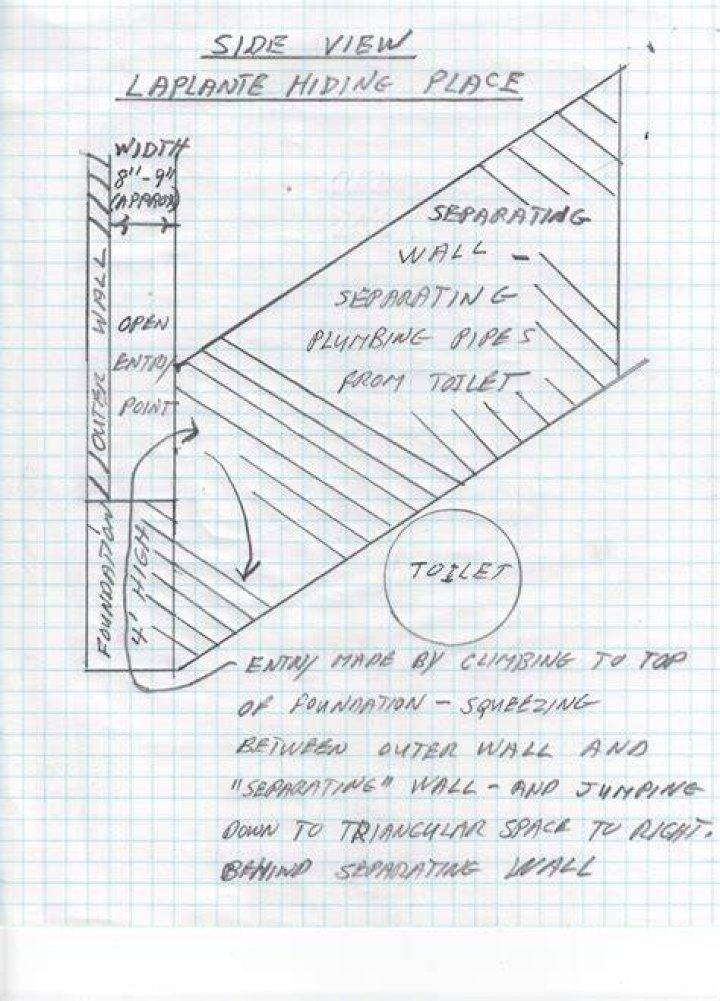 SIDE VIEW
LAPLANTE HIDING PLACE
WIDTH
8"-9"
(APPROX)
OUTER WALL
OPEN
ENTRY
POINT
SEPARATING
WALL -
SEPARATING
PLUMBING PIPES
FROM TOILET
FOUNDATION
4' HIGH
TOILET
ENTRY MADE BY CLIMBING TO TOP
OF FOUNDATION - SQUEEZING
BETWEEN OUTER WALL AND
"SEPARATING" WALL - AND JUMPING
DOWN TO TRIANGULAR SPACE TO RIGHT.
BEHIND SEPARATING WALL